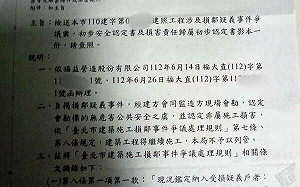 附件：如主旨
主旨：檢送本市110建字第0 建照工程涉及損鄰疑義事件爭
議案，初步安全認定書及損害責任歸屬初步認定書影本一
份，請查照。
說明：
一、依福益營造股份有限公司112年6月14日福大直(112)字第
1 號、112年6月26日福大直(112)字第11
號函辦理。
二、旨揭損鄰疑義事件，經建方會同監造方現場會勘，認定
會勘標的無危害公共安全之虞，並認定非屬施工損害，
依「臺北市建築施工損鄰事件爭議處理規則」第七條、
第八條規定，建築工程得繼續施工，本局不予以列管。
三、茲檢「臺北市建築施工損鄰事件爭議處理規則」相關條
文摘錄如下：
(一)第八條第一項第一款：「現況鑑定納入受損疑義戶者：